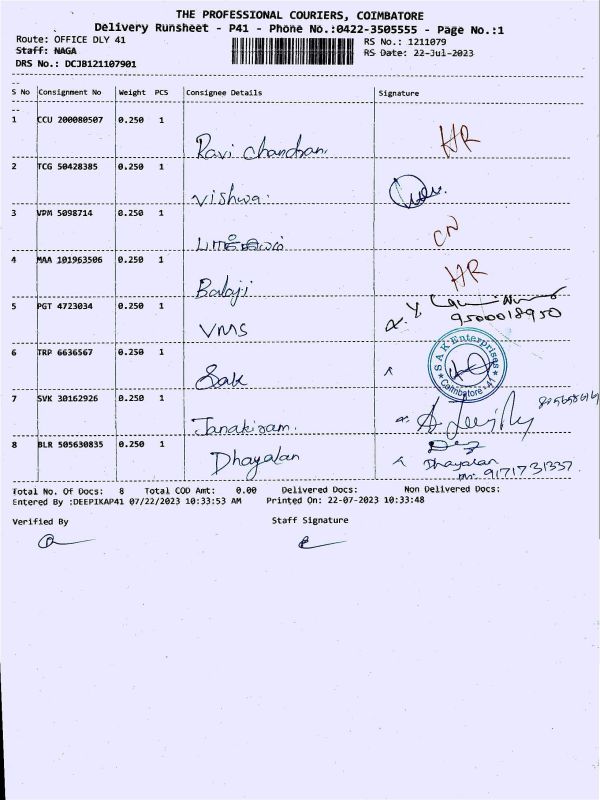 THE PROFESSIONAL COURIERS, COIMBATORE
Delivery Runsheet - P41 - Phone No.:0422-3505555 - Page No.:1
Route: OFFICE DLY 41
RS No.: 1211079
Staff: NAGA
RS Date: 22-Jul-2023
DRS No.: DCJB121107901
S No Consignment No Weight PCS Consignee Details Signature
1 CCU 200080507 0.250 1 Ravi chandran. HR
2 TCG 50428385 0.250 1 Vishwa.
3 VPM 5098714 0.250 1 CN
4 MAA 101963506 0.250 1 Balaji HR
5 PGT 4723034 0.250 1 VMS 9500018950
6 TRP 6636567 0.250 1 Sak SAK Enterprises Coimbatore - 41
7 SVK 30162926 0.250 1 Janakiram.
8 BLR 505630835 0.250 1 Dhayalan Dhayalan 9171731337
Total No. Of Docs: 8 Total COD Amt: 0.00 Delivered Docs: Non Delivered Docs:
Entered By :DEEPIKAP41 07/22/2023 10:33:53 AM Printed On: 22-07-2023 10:33:48
Verified By Staff Signature